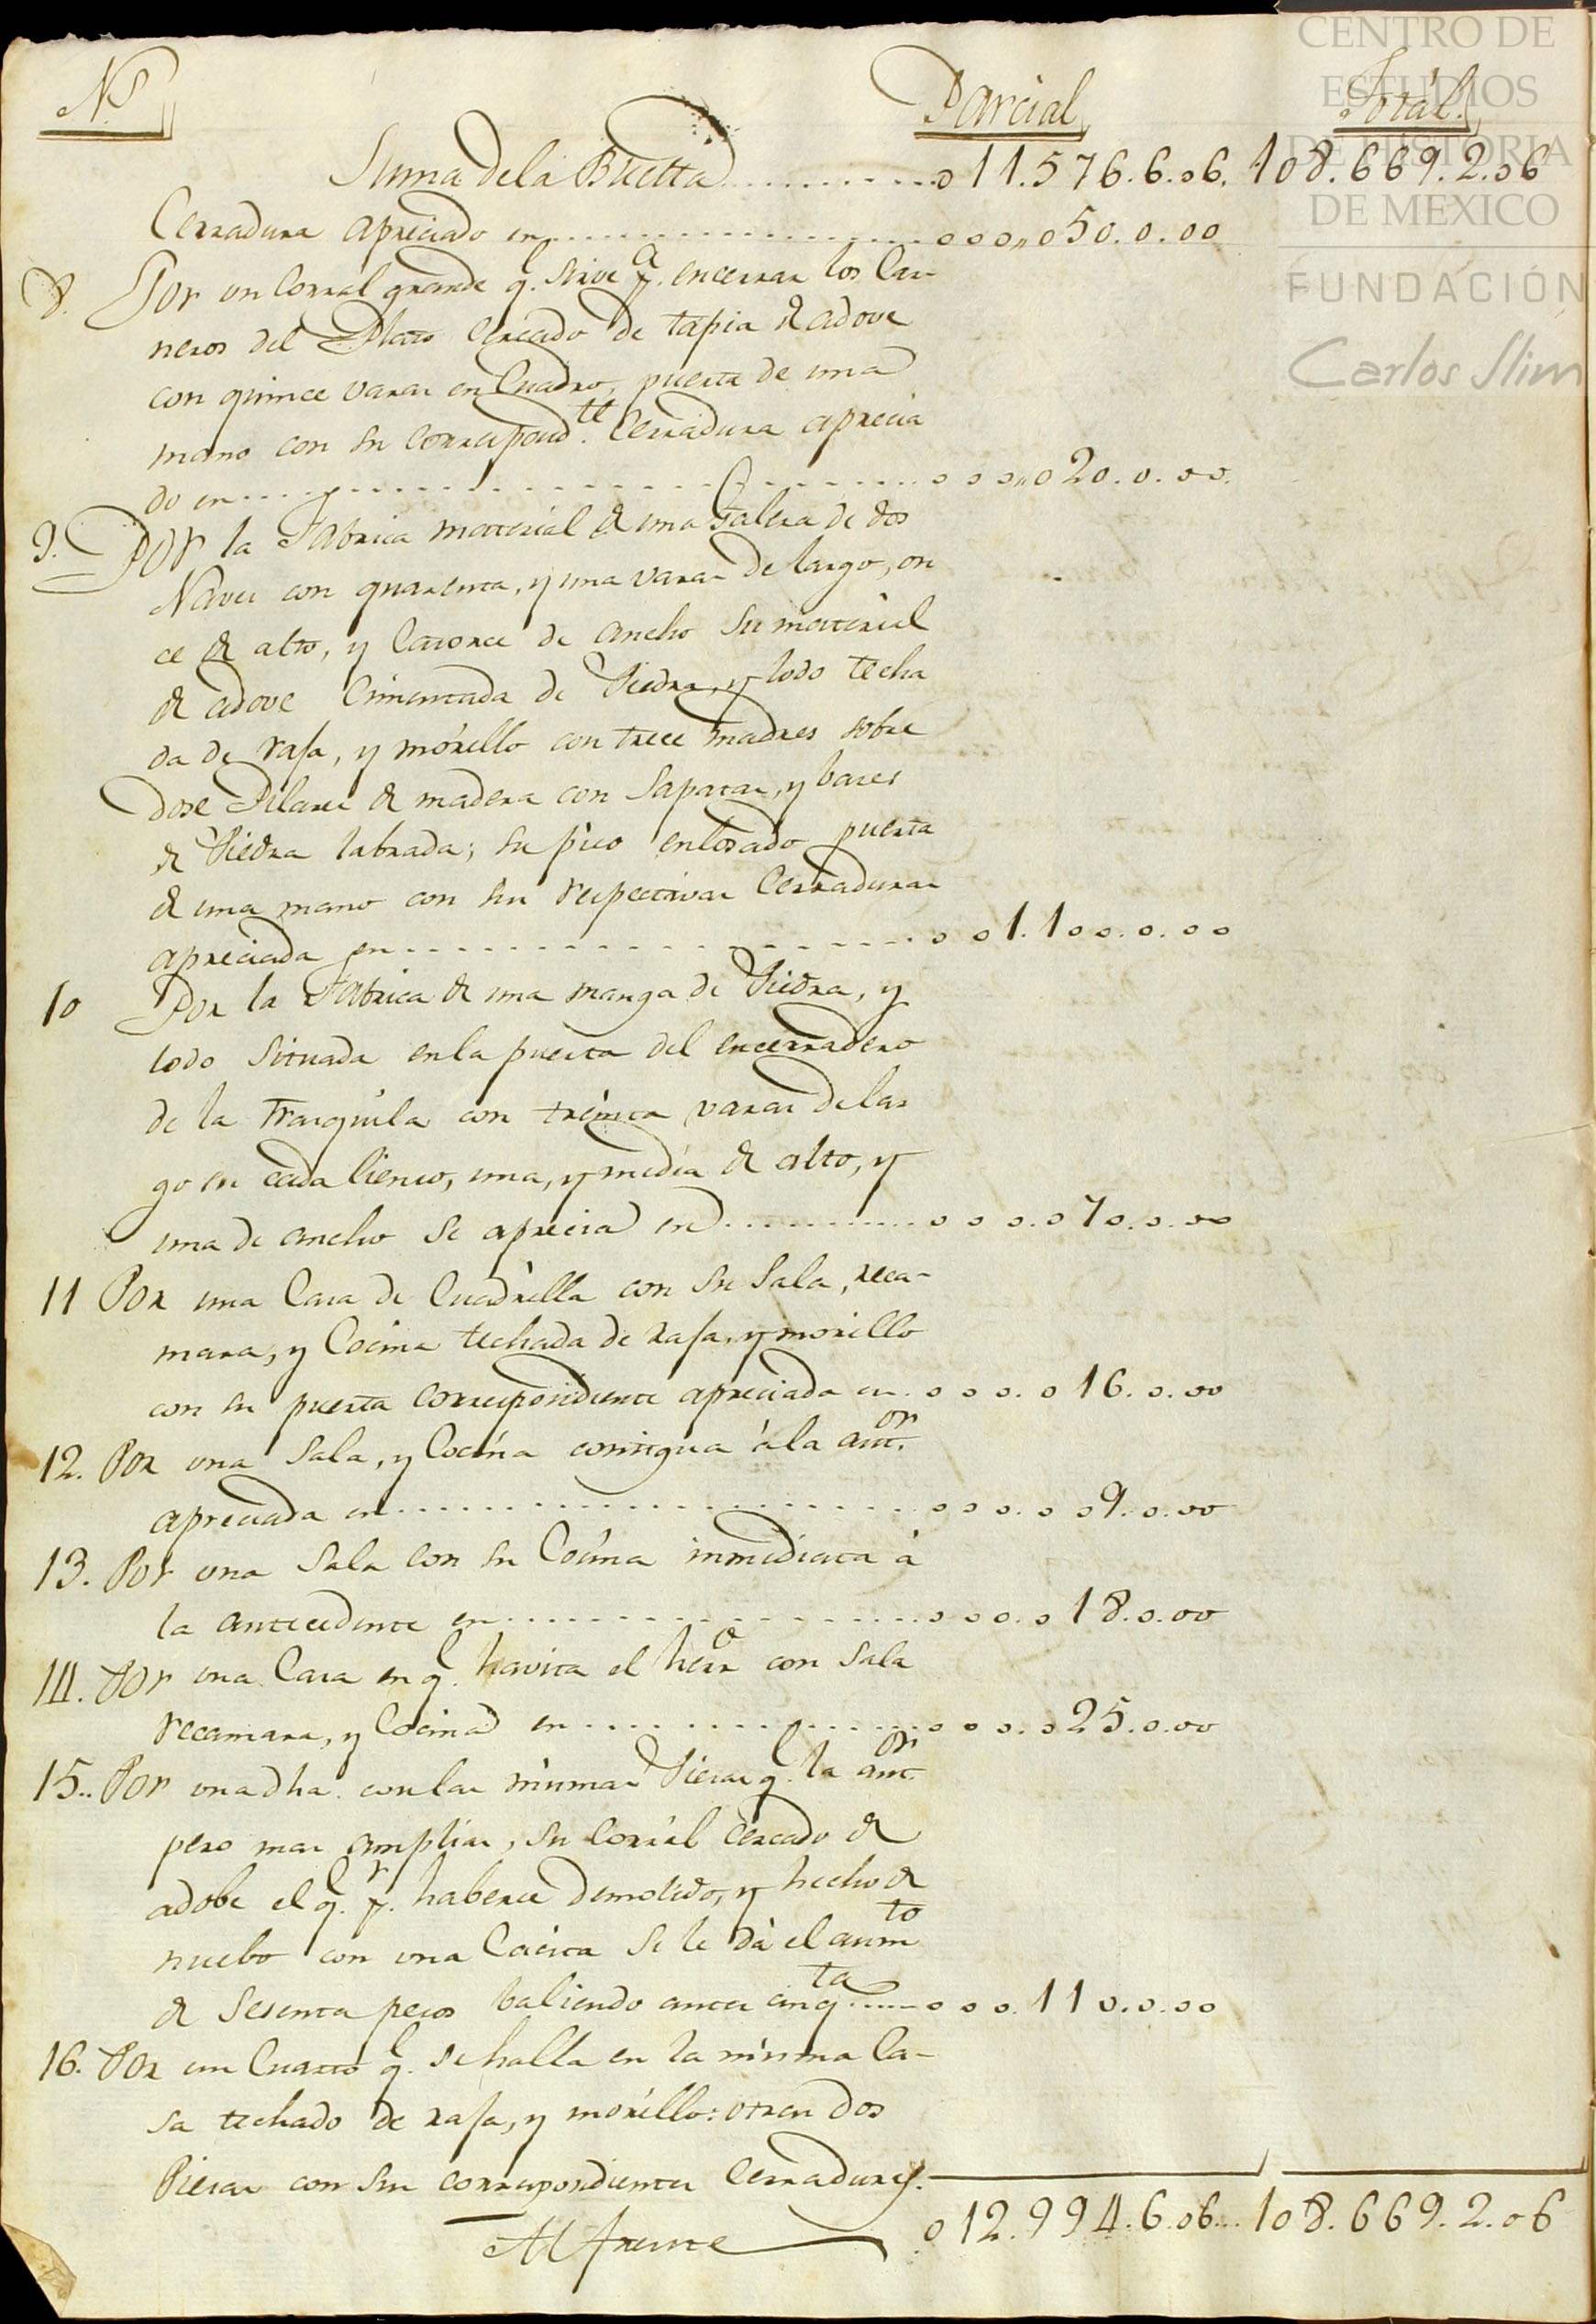 CENTRO DE
ESTUDIOS
DE HISTORIA
DE MEXICO
FUNDACIÓN
Carlos Slim
N.s Parcial Total.
Suma de la Buelta.............o11.576.6.06. 108.669.2.06
Cerradura apreciado en....................ooo,,o50.0.00
8. Por un Corral grande q.l sirve p.a encerrar los Car-
neros del Plato Cercado de tapia de adove
con quince varas en Cuadro, puerta de una
mano con su correspond.te Cerradura aprecia
do en..............................ooo,,o20.0.00.
9. Por la Fabrica material de una Galera de dos
Naves con quarenta, y una varas de largo, on
ce de alto, y Catorce de ancho su material
de adove Cimentada de Piedra, y lodo techa
da de rafa, y morillo con trece madres sobre
dose Pilares de madera con Sapatas, y bases
de Piedra labrada; su piso enlosado puerta
de una mano con sus respectivas Cerraduras
apreciada en.........................oo1.100.0.00
10 Por la Fabrica de una manga de Piedra, y
lodo Situada en la puerta del encerradero
de la Trasquila con treinta varas de lar
go en cada lienso, una, y media de alto, y
una de ancho se aprecia en............ooo.o70.0.00
11 Por una Casa de Cuadrilla con su Sala, reca-
mara, y Cocina techada de rafa, y morillo
con su puerta Correspondiente apreciada en.ooo.o16.0.00
12. Por una Sala, y Cocina contigua á la ant.or
apreciada en.........................ooo.oo9.0.00
13. Por una Sala con su Cocina inmediata á
la antecedente en.....................ooo.o18.0.00
14. Por una Casa en q.l havita el herr.o con Sala
recamara, y Cocina en.................ooo.o25.0.00
15.. Por una dha. con las mismas Piesas q.l la ant.or
pero mas amplias, su Corral cercado de
adobe el q.l p.r haberse demolido, y hecho de
nuebo con una Casita se le dá el aum.to
de Sesenta pesos baliendo antes cinq.ta......ooo.110.0.00
16. Por un Cuarto q.l se halla en la misma Ca-
sa techado de rafa, y morillo: otras dos
Piesas con sus correspondientes Cerraduras.
Al frente o12.994.6.06...108.669.2.06